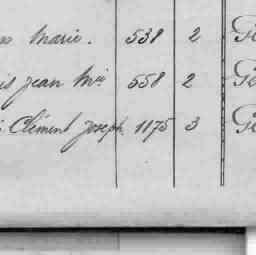 Marie. 538 2
Jean Mie 558 2
Clément Joseph 1175 3